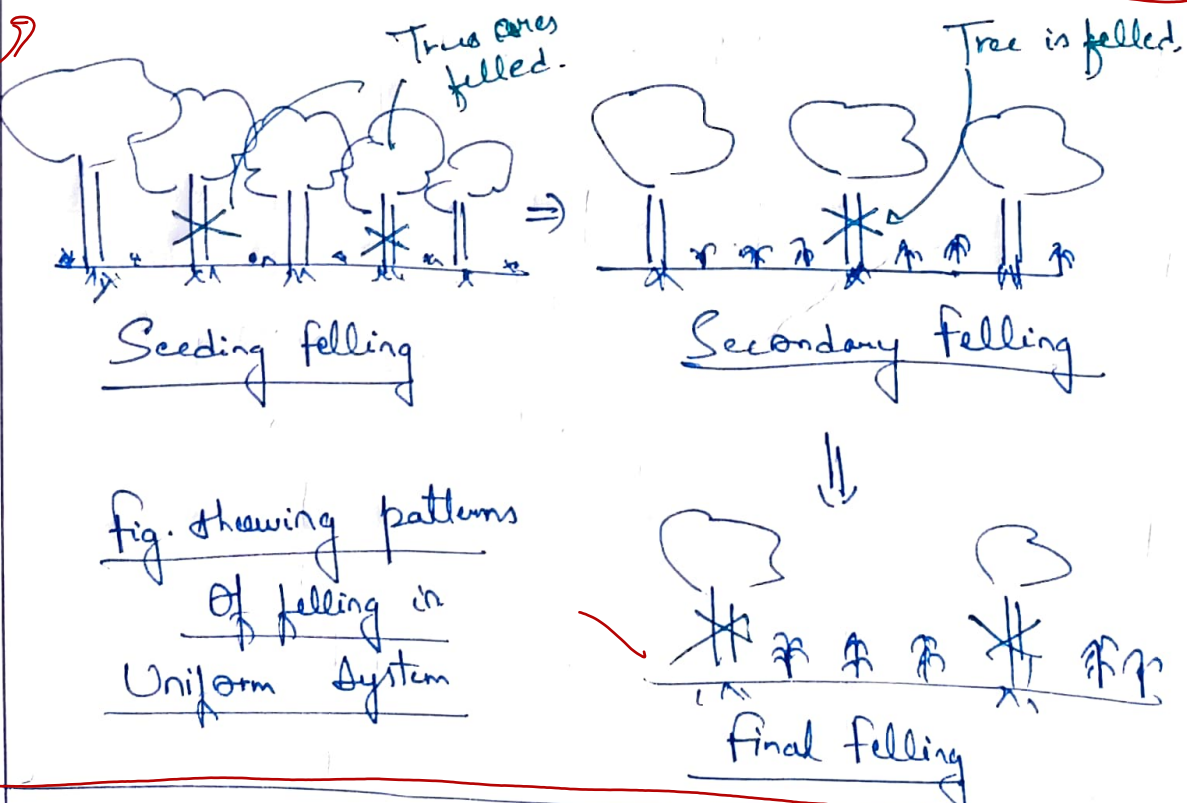 Trees ares
felled.
Tree is felled.
⇒
Seeding felling
Secondary felling
⇓
fig. showing patterns
Of felling in
Uniform System
final felling